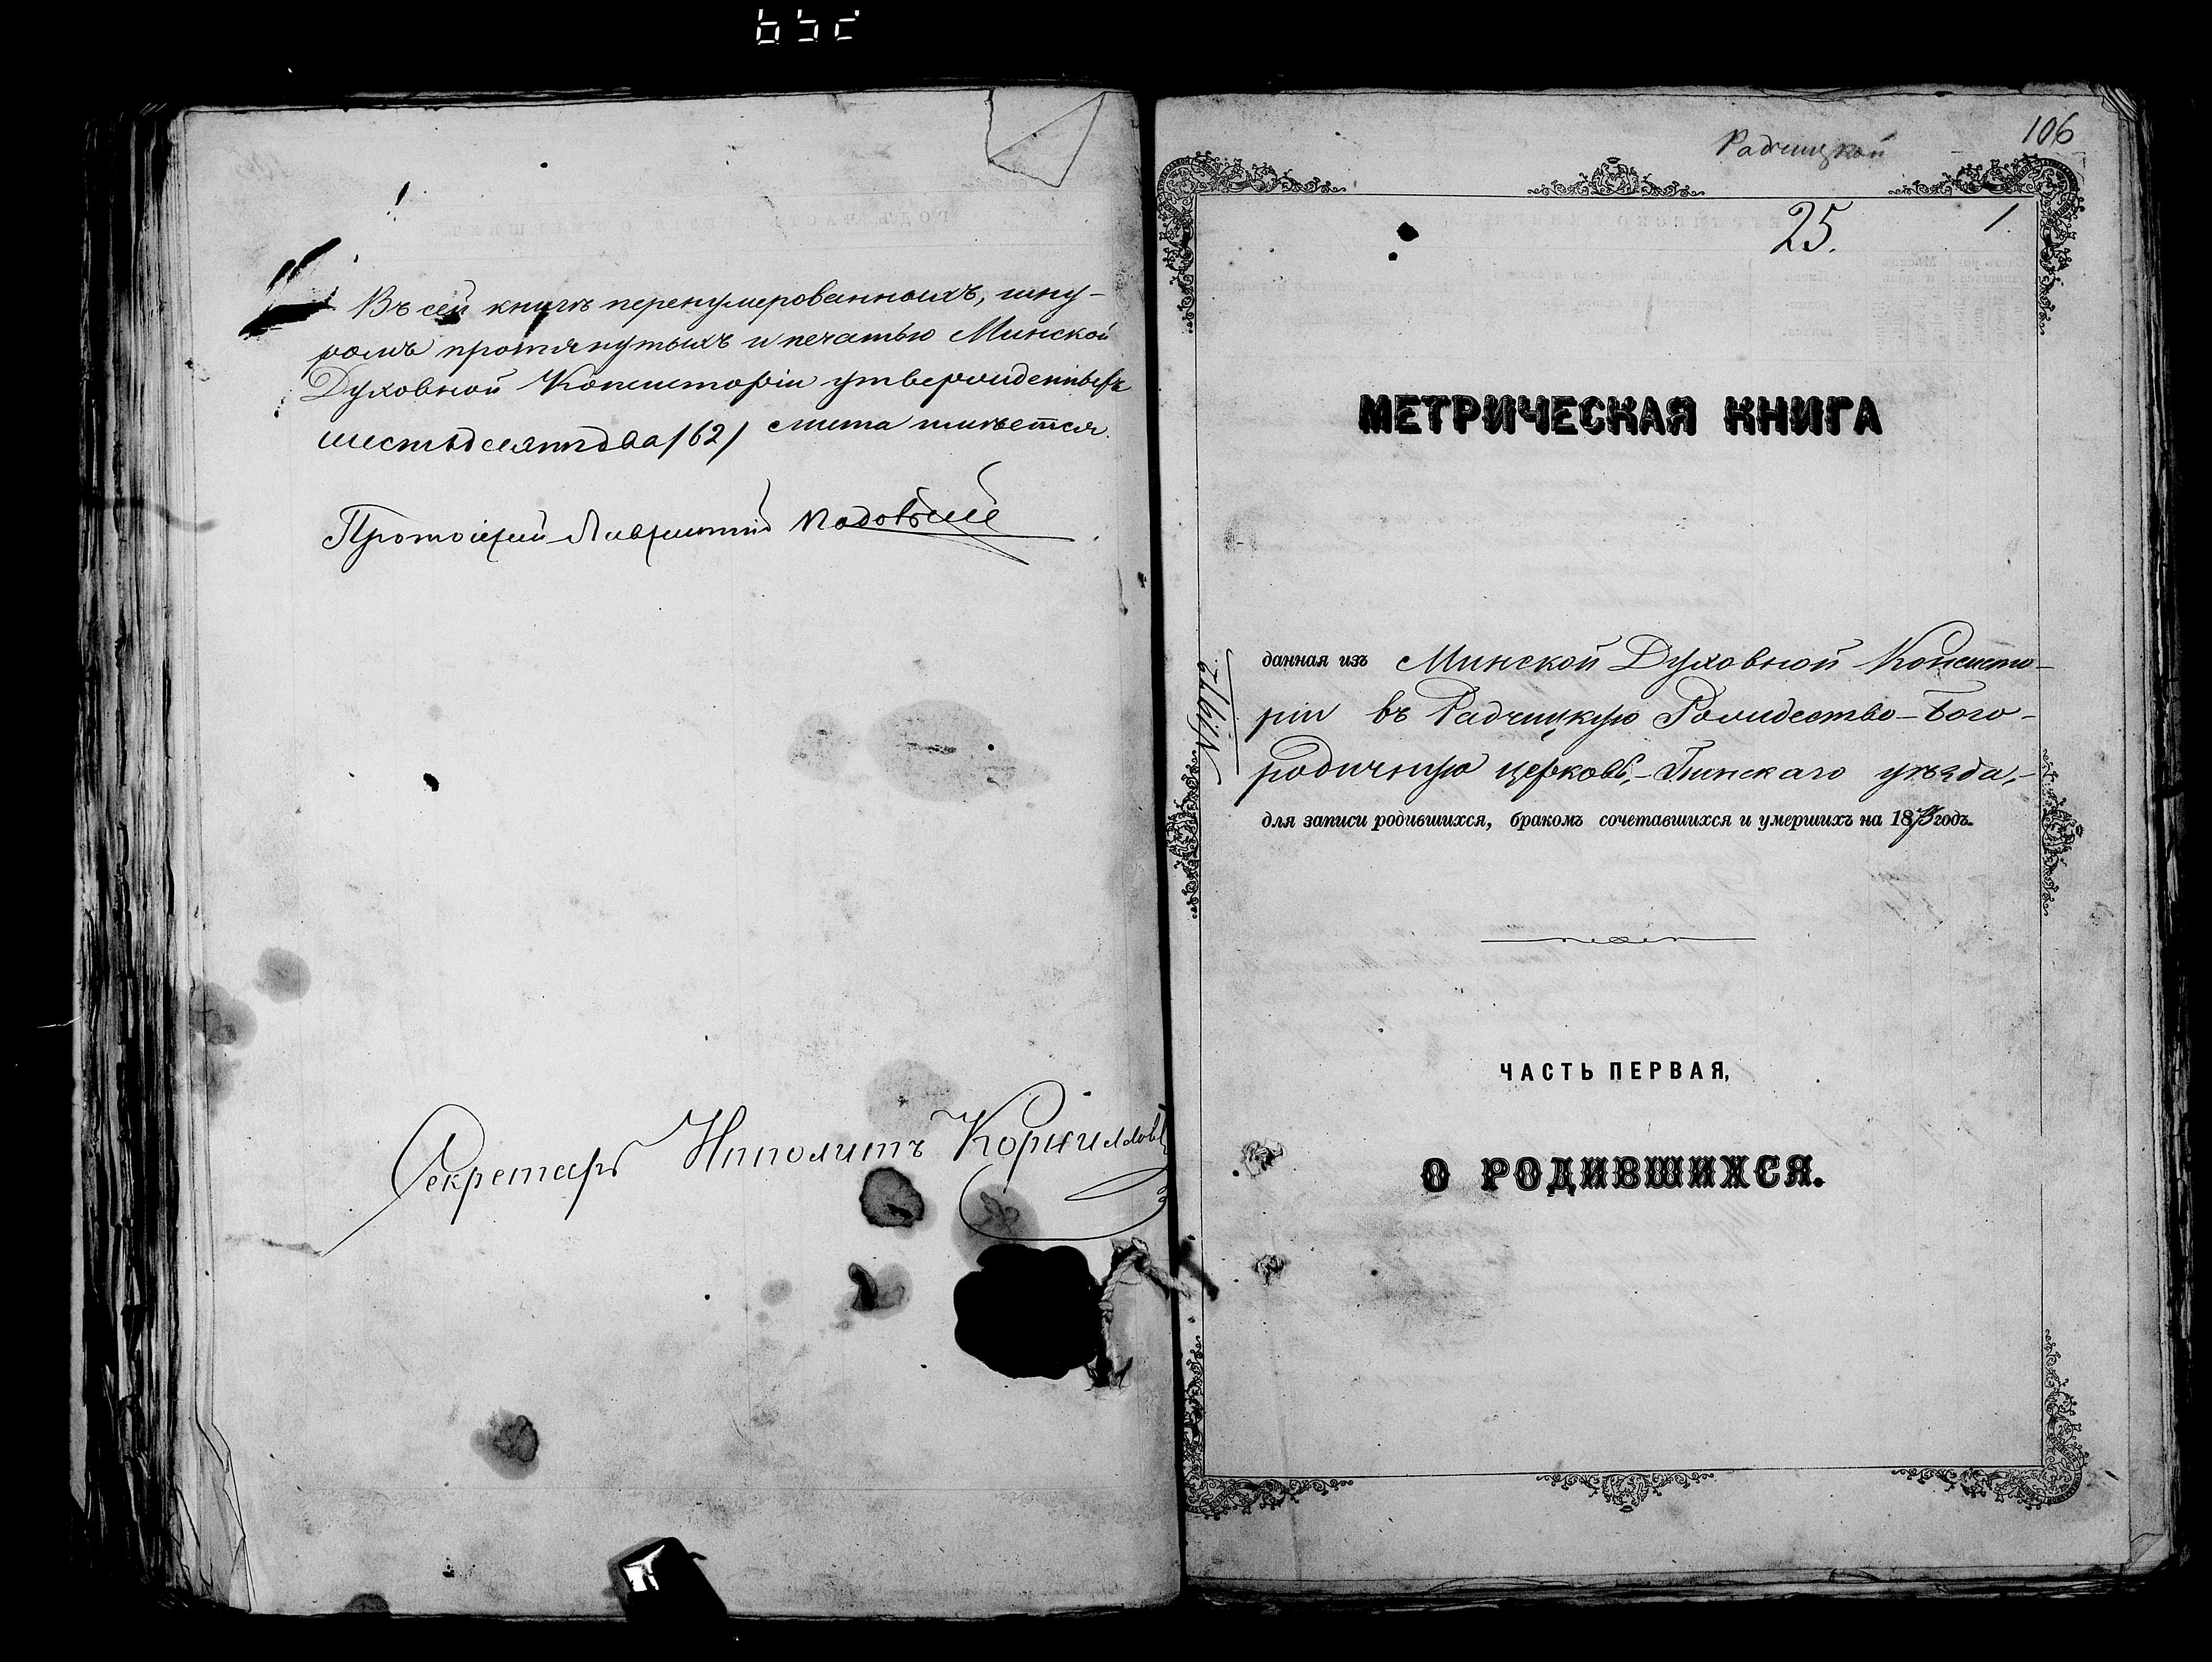 Въ сей книгѣ перенумерованныхъ, шну-
ромъ протянутыхъ и печатью Минской
Духовной Консисторіи утвержденныхъ
шестьдесятъ два /62/ листа имѣется.
Протоіерей
Секретарь Ипполитъ Корнилловъ
Радчицкой
106
25.
1
МЕТРИЧЕСКАЯ КНИГА
данная изъ Минской Духовной Консисто-
ріи въ Радчицкую Рождество-Бого-
родичную церковь, Пинскаго уѣзда,
для записи родившихся, бракомъ сочетавшихся и умершихъ на 187 годъ.
ЧАСТЬ ПЕРВАЯ,
О РОДИВШИХСЯ.